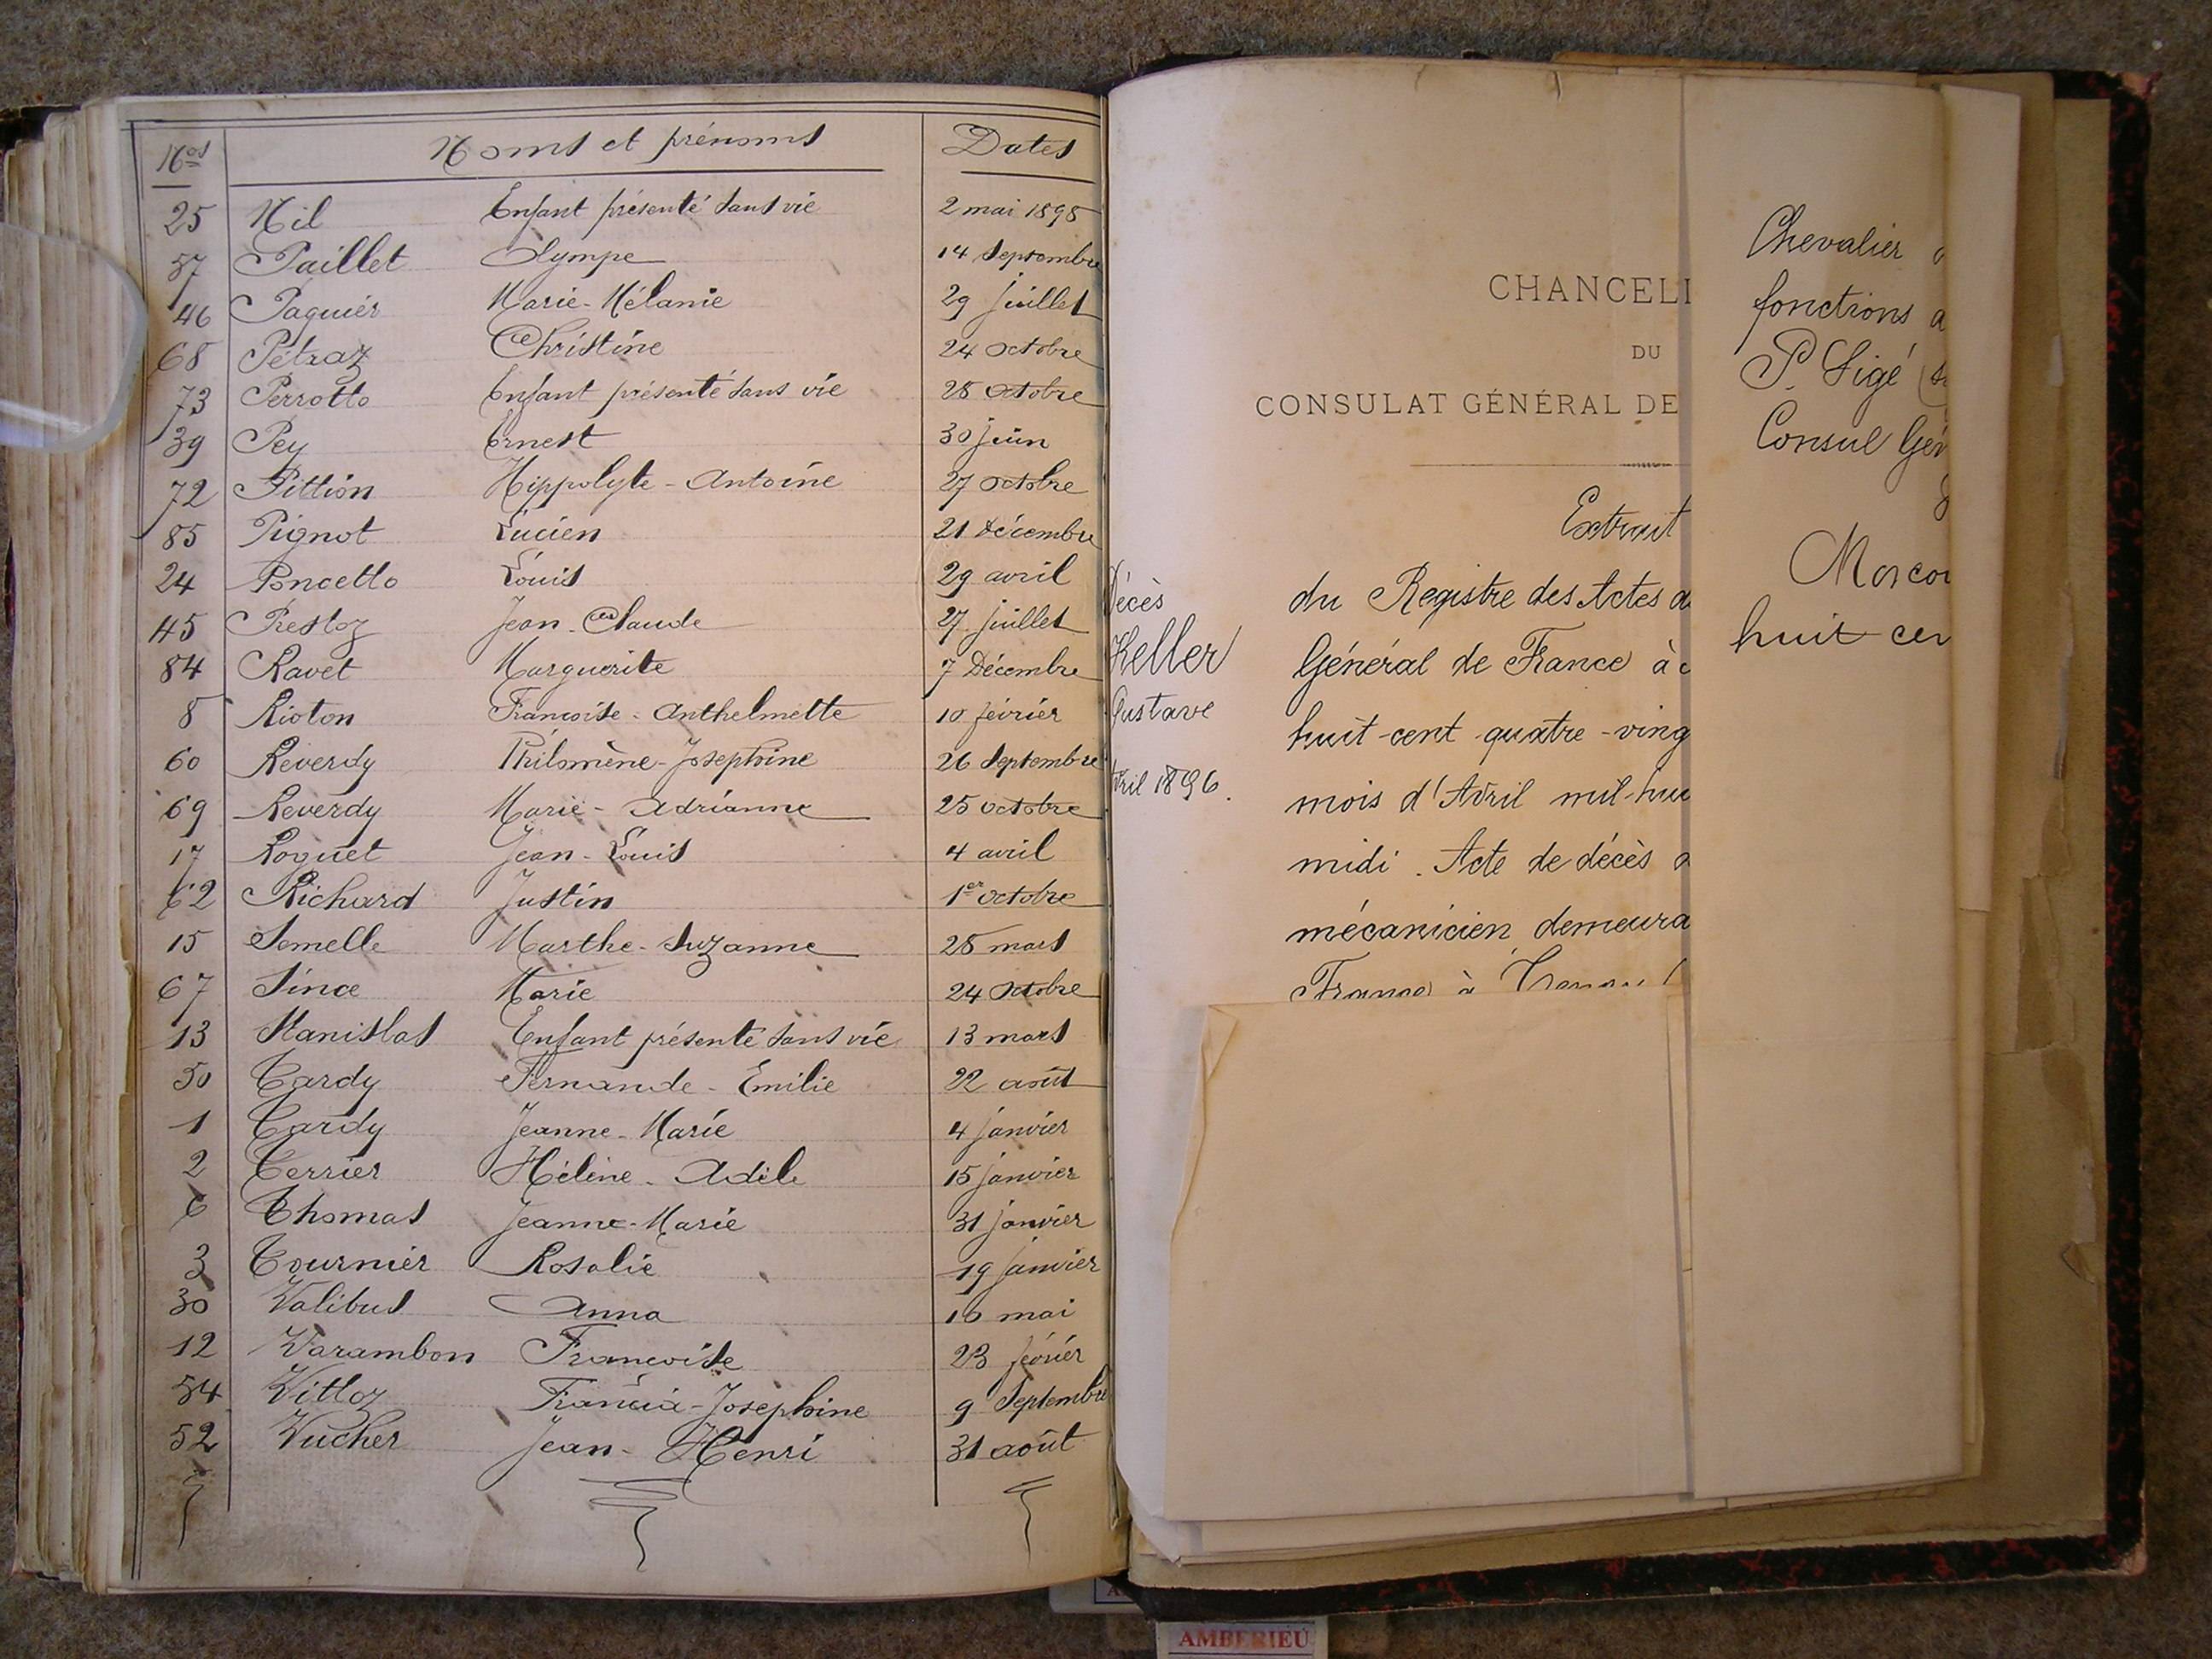 Nos Noms et prénoms Dates
25 Nil Enfant présenté sans vie 2 mai 1898
57 Paillet Olympe 14 Septembre
46 Paquier Marie-Mélanie 29 juillet
68 Pétraz Christine 24 octobre
73 Perrotto Enfant présenté sans vie 28 octobre
39 Pey Ernest 30 juin
72 Pittion Hippolyte-Antoine 27 octobre
85 Pignot Lucien 21 décembre
24 Poncetto Louis 29 avril
45 Prestoz Jean-Claude 27 juillet
84 Ravet Marguerite 7 Décembre
8 Rioton Françoise-Anthelmette 10 février
60 Reverdy Philomène-Josephine 26 Septembre
69 Reverdy Marie-Adrianne 25 octobre
17 Roguet Jean-Louis 4 avril
62 Richard Justin 1er octobre
15 Semelle Marthe-Suzanne 28 mars
67 Marie 24 octobre
13 Stanislas Enfant présenté sans vie 13 mars
50 Tardy Fernande-Émilie 22 août
1 Tardy Jeanne-Marie 4 janvier
2 Terrier Hélène-Adèle 15 janvier
6 Thomas Jeanne-Marie 31 janvier
3 Tournier Rosalie 19 janvier
30 Valibus Anna 16 mai
12 Varambon Françoise 23 février
54 Vittoz Francia-Josephine 9 Septembre
52 Vucher Jean-Henri 31 août
CHANCELI
DU
CONSULAT GÉNÉRAL DE
Extrait
Décès
Keller
Gustave
vril 1896.
du Registre des Actes d
Général de France à
huit-cent quatre-ving
mois d'Avril mil-hui
midi. Acte de décès d
mécanicien demeura
France à
Chevalier
fonctions a
P. Sigé
Consul Gén
Moscou
huit cen
AMBERIEU